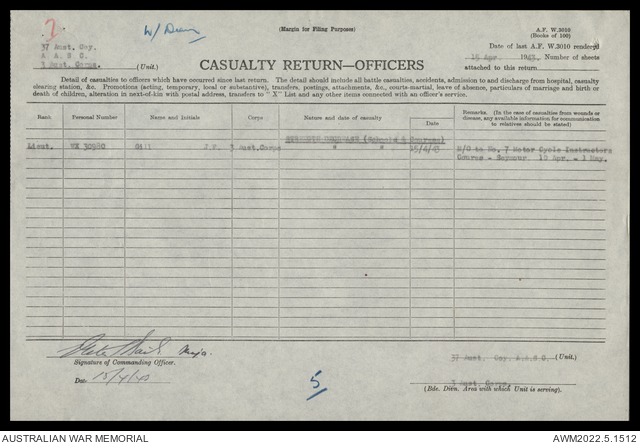 2
W/ Dean
(Margin for Filing Purposes)
A.F. W.3010
(Books of 100)
37 Aust. Coy.
A A S C.
3 Aust. Corps. (Unit.)
Date of last A.F. W.3010 rendered
15 Apr. 1943. Number of sheets
attached to this return
CASUALTY RETURN—OFFICERS
Detail of casualties to officers which have occurred since last return. The detail should include all battle casualties, accidents, admission to and discharge from hospital, casualty
clearing station, &c. Promotions (acting, temporary, local or substantive), transfers, postings, attachments, &c., courts-martial, leave of absence, particulars of marriage and birth or
death of children, alteration in next-of-kin with postal address, transfers to "X" List and any other items connected with an officer's service.
Rank Personal Number Name and Initials Corps Nature and date of casualty Date Remarks. (In the case of casualties from wounds or
disease, any available information for communication
to relatives should be stated)
(Schools & Courses)
Lieut. WX 30980 Gill J.F. 3 Aust.Corps " " 15/4/43 M/O to No. 7 Motor Cycle Instructors
Course - Seymour. 19 Apr. - 1 May.
Major.
Signature of Commanding Officer.
Date 15/4/43
5
37 Aust. Coy. A.A.S C. (Unit.)
3 Aust. Corps.
(Bde. Divn. Area with which Unit is serving).
AUSTRALIAN WAR MEMORIAL
AWM2022.5.1512